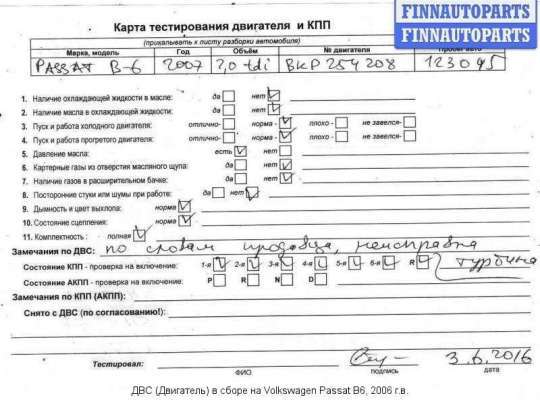 FINNAUTOPARTS
FINNAUTOPARTS
Карта тестирования двигателя и КПП
(прикалывать к листу разборки автомобиля)
Марка, модель Год Объём № двигателя Пробег авто
PASSAT B-6 2007 2,0 tdi BKP 254208 123095
1. Наличие охлаждающей жидкости в масле: да нет
2. Наличие масла в охлаждающей жидкости: да нет
3. Пуск и работа холодного двигателя: отлично- норма - плохо - не завелся-
4. Пуск и работа прогретого двигателя: отлично- норма - плохо - не завелся-
5. Давление масла: есть нет
6. Картерные газы из отверстия масляного щупа: да нет
7. Наличие газов в расширительном бачке: да нет
8. Посторонние стуки или шумы при работе: да нет
9. Дымность и цвет выхлопа: норма
10. Состояние сцепления: норма
11. Комплектность : полная
Замечания по ДВС: по словам продавца, неисправна
Состояние КПП - проверка на включение: 1-я 2-я 3-я 4-я 5-я 6-я R турбина
Состояние АКПП - проверка на включение: P R N D
Замечания по КПП (АКПП):
Снято с ДВС (по согласованию!):
Тестировал: 3.6.2016
ФИО подпись дата
ДВС (Двигатель) в сборе на Volkswagen Passat B6, 2006 г.в.